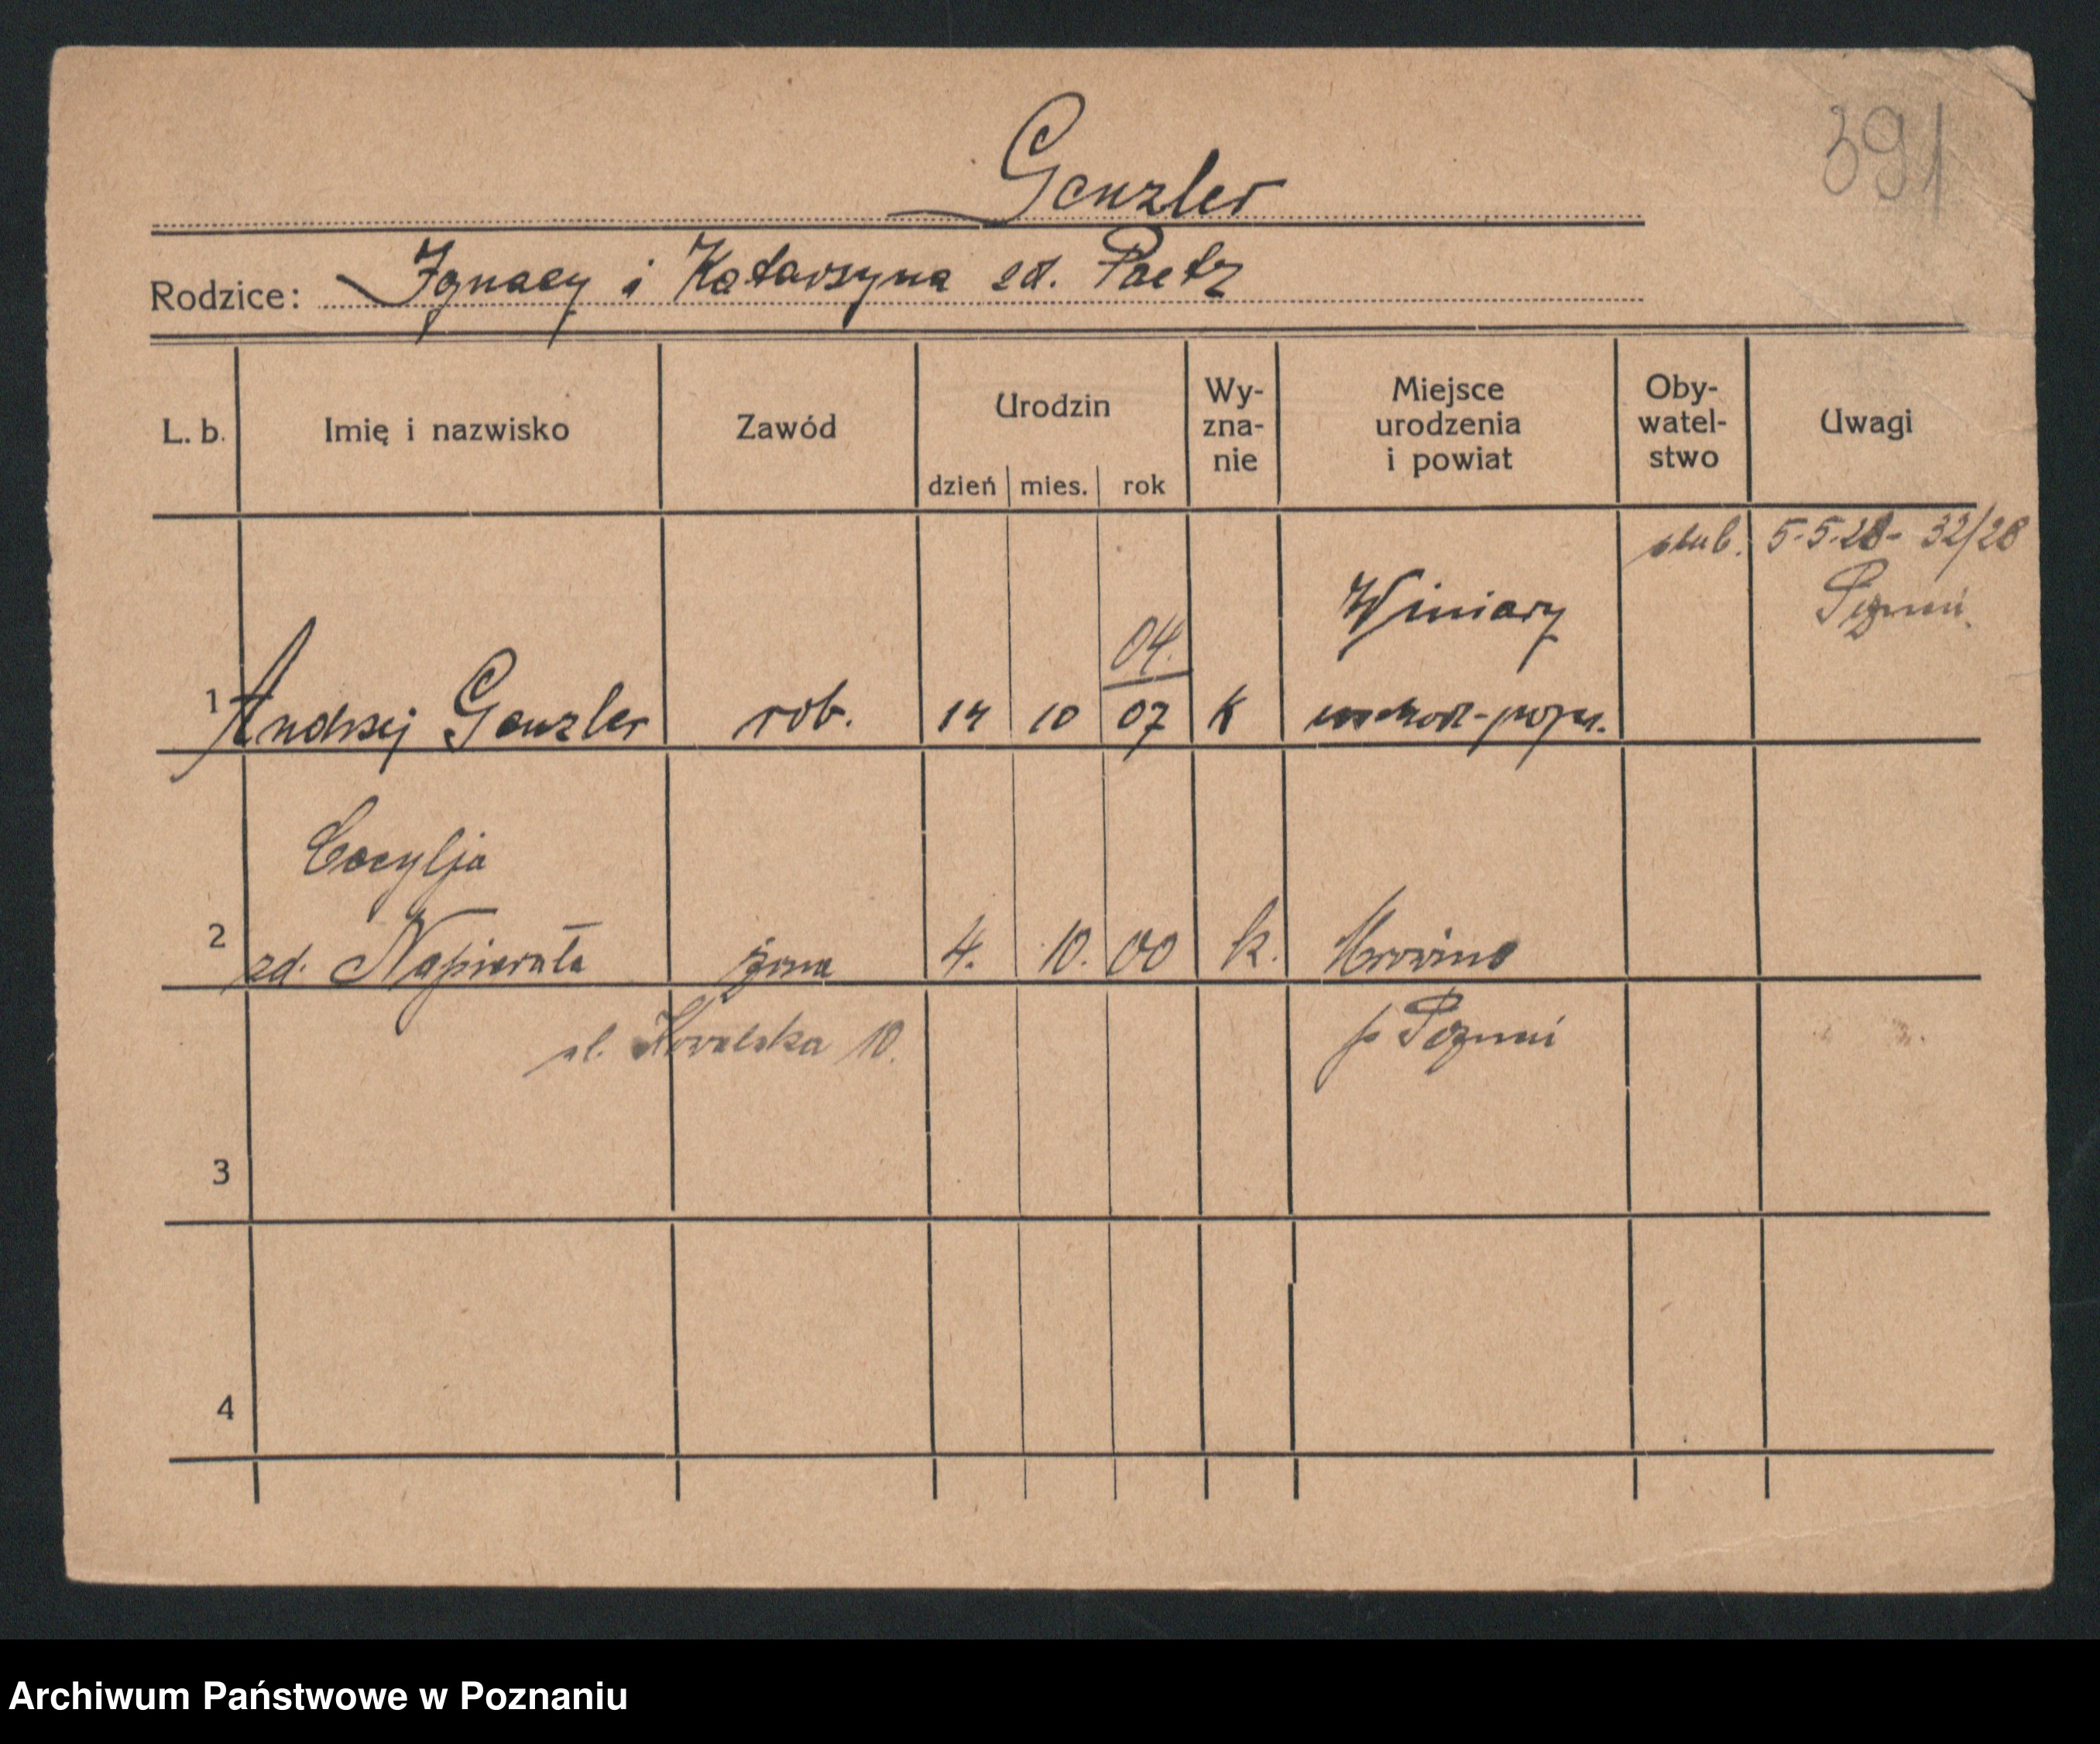 391
Genzler
Rodzice: Ignacy i Katarzyna zd. Paetz
L. b. Imię i nazwisko Zawód Urodzin dzień mies. rok Wy-zna-nie Miejsce urodzenia i powiat Oby-watel-stwo Uwagi
ślub. 5.5.28 - 32/28
Poznań.
04. Winiary
1 Andrzej Genzler rob. 14 10 07 K
Cecylja
2 zd. Napierała żona 4. 10. 00 k. Mrowino
ul. Kowalska 10. p Poznań
3
4
Archiwum Państwowe w Poznaniu